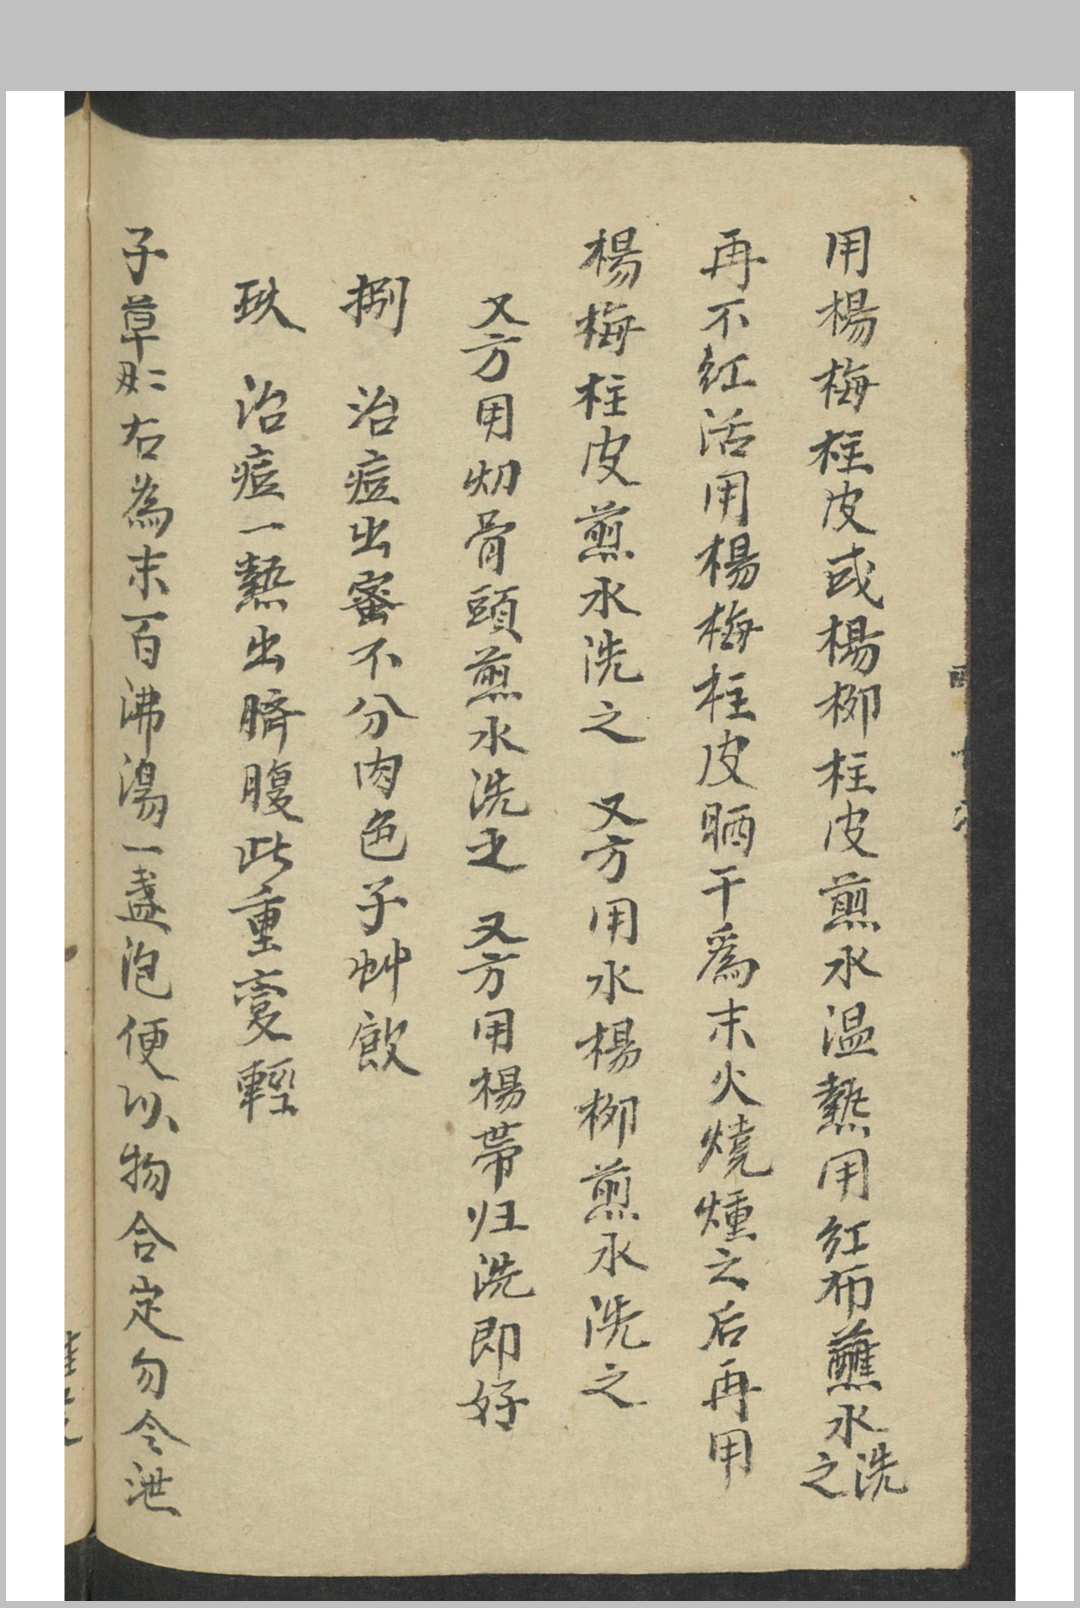 用楊梅柱皮或楊柳柱皮煎水温熱用紅布蘸水洗之
再不紅活用楊梅柱皮晒干爲末火燒燻之后再用
楊梅柱皮煎水洗之 又方用水楊柳煎水洗之
又方用刅骨頭煎水洗之 又方用楊帶归洗即好
捌 治痘出蜜不分肉色子艸飲
玖 治痘一熱出臍腹此重变輕
子草 右為末百沸湯一盞泡便以物合定勿令泄